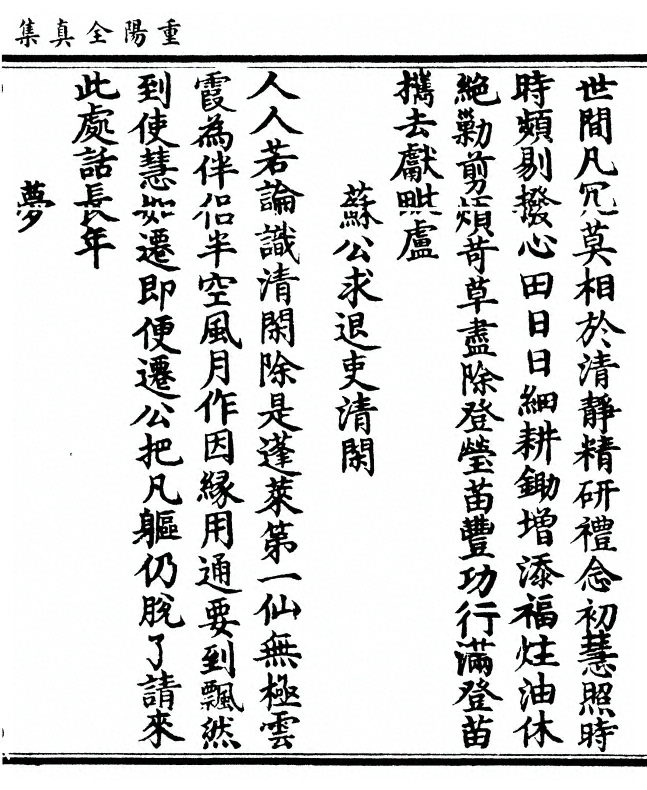 重陽全真集
世間凡冗莫相於清靜精研禮念初慧照時
時頻剔撥心田日日細耕鋤增添福炷油休
絕勦剪煩苛草盡除登瑩苗豐功行滿登苗
攜去獻毗盧
蘇公求退吏清閑
人人若論識清閑除是蓬萊第一仙無極雲
霞為伴侶半空風月作因緣用通要到飄然
到使慧如遷即便遷公把凡軀仍脫了請來
此處話長年
夢